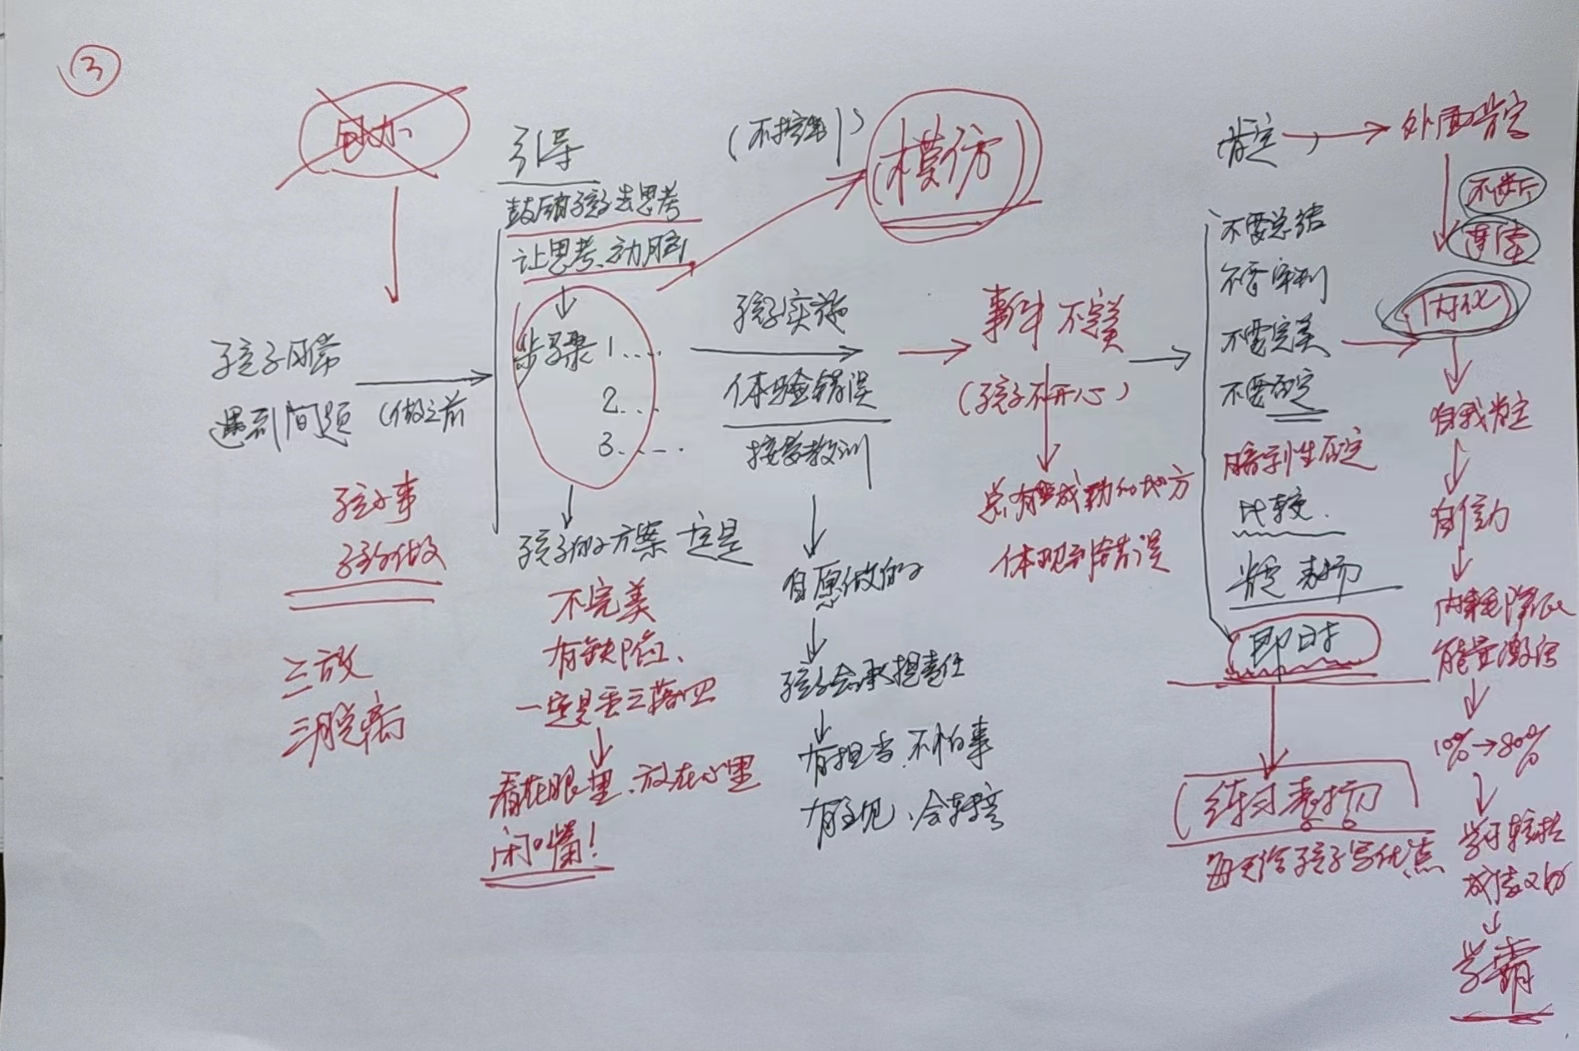 ③
孩子日常
遇到问题
(做之前
孩子事
孩子做
三放
三脱离
引导
鼓励孩子去思考
让思考、动脑
步骤1....
2....
3......
孩子的方案一定是
不完美
有缺陷、
一定是丢三落四
看在眼里、放在心里
闭嘴!
(不控制)
模仿
孩子实施
体验错误
接受教训
自愿做的
孩子会承担责任
有担当、不怕事
有主见、会转弯
事件不完美
(孩子不开心)
总有些成功的地方
体现到错误
肯定
不要总结
不要审判
不要完美
不要否定
暗示性否定
比较.
肯定 表扬
即时
(练习表扬)
每天给孩子写优点
外面肯定
不断
内化
自我肯定
自信力
内耗降低
能量激活
10%→80%
学习轻松
成绩又好
学霸